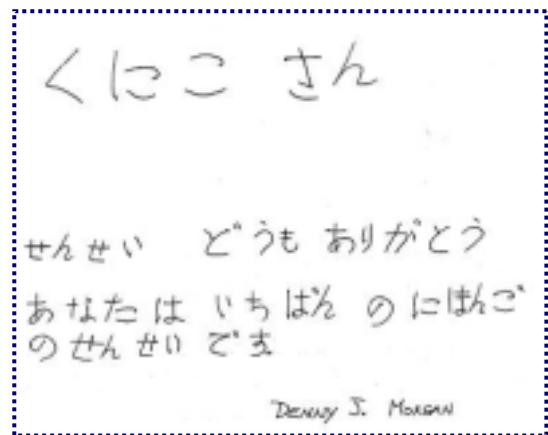 くにこ さん
せんせい どうも ありがとう
あなたは いちばん のにほんご
のせんせいです
DENNY J. MORGAN